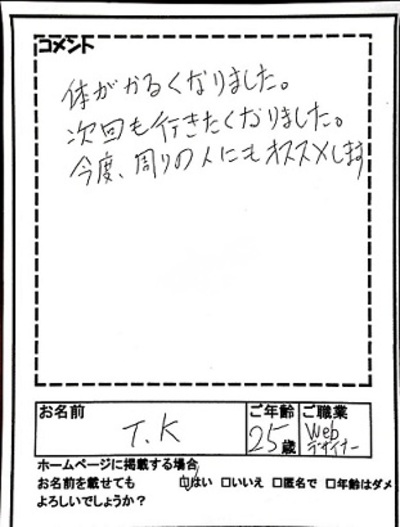 コメント
体がかるくなりました。
次回も行きたくなりました。
今度、周りの人にもオススメします
お名前 ご年齢 ご職業
T.K 25歳 Webデザイナー
ホームページに掲載する場合
お名前を載せても ☑はい □いいえ □匿名で □年齢はダメ
よろしいでしょうか？